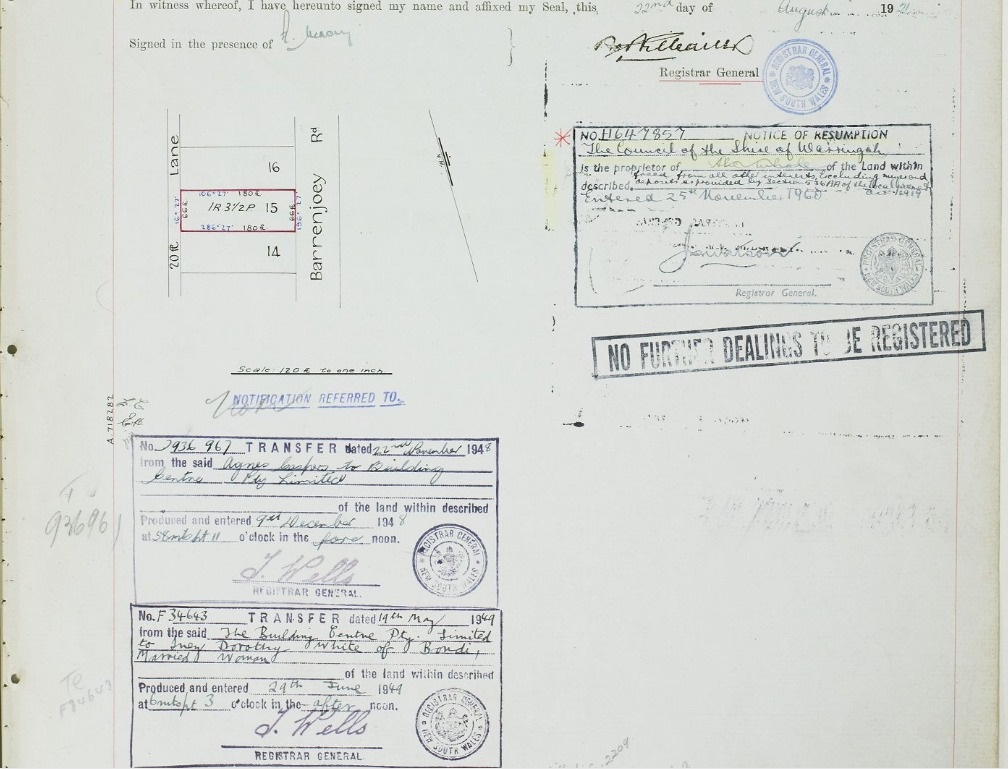 In witness whereof, I have hereunto signed my name and affixed my Seal, this 22nd day of August 1921
Signed in the presence of
Registrar General
REGISTRAR GENERAL NEW SOUTH WALES
Lane
20 ft
16
106° 27' 180 ft
16° 27' 66 ft
1R 3½P 15
66 ft 196° 27'
286° 27' 180 ft
14
Barrenjoey Rd
Scale: 120 ft to one inch
NOTIFICATION REFERRED TO
A 718282
No. D936 961 TRANSFER dated 22nd November 1948
from the said Agnes to Building
Centre Pty Limited
of the land within described
Produced and entered 9th December 1948
at 11 o'clock in the fore noon.
J. Wells
REGISTRAR GENERAL.
REGISTRAR GENERAL NEW SOUTH WALES
936961
No. F 34643 TRANSFER dated 19th May 1949
from the said The Building Centre Pty. Limited
to Dorothy White of Bondi,
Married Woman
of the land within described
Produced and entered 29th June 1949
at 6 mts pt 3 o'clock in the after noon.
J. Wells
REGISTRAR GENERAL
REGISTRAR GENERAL NEW SOUTH WALES
F34643
No. H647857 NOTICE OF RESUMPTION
The Council of the Shire of Warringah
is the proprietor of the whole of the Land within
described, freed from all other interests excluding
deposits as provided by Section 536AA of the Local
Act 1919
Entered 25th November 1960
Registrar General.
NO FURTHER DEALINGS TO BE REGISTERED